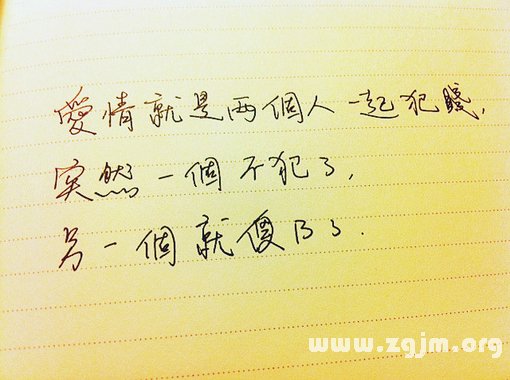 愛情就是两個人一起犯賤，
突然一個不犯了，
另一個就傻B了．
www.zgjm.org